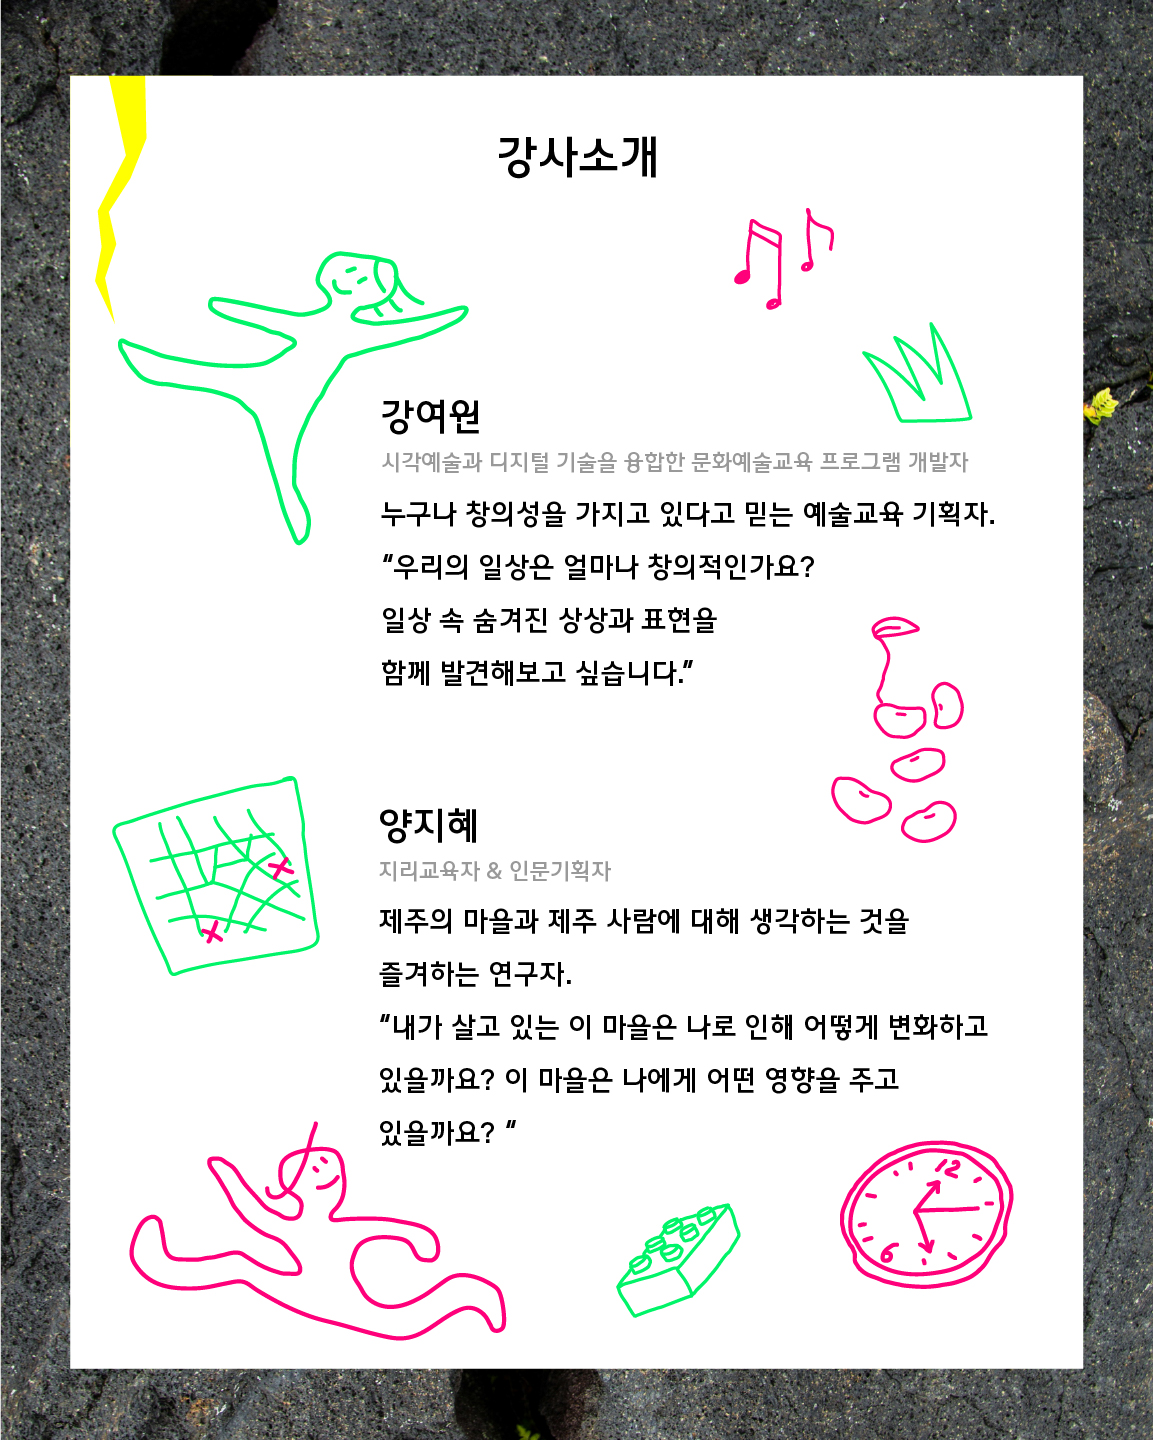 강사소개
강여원
시각예술과 디지털 기술을 융합한 문화예술교육 프로그램 개발자
누구나 창의성을 가지고 있다고 믿는 예술교육 기획자.
“우리의 일상은 얼마나 창의적인가요?
일상 속 숨겨진 상상과 표현을
함께 발견해보고 싶습니다.”
양지혜
지리교육자 & 인문기획자
제주의 마을과 제주 사람에 대해 생각하는 것을
즐겨하는 연구자.
“내가 살고 있는 이 마을은 나로 인해 어떻게 변화하고
있을까요? 이 마을은 나에게 어떤 영향을 주고
있을까요? “
12
6